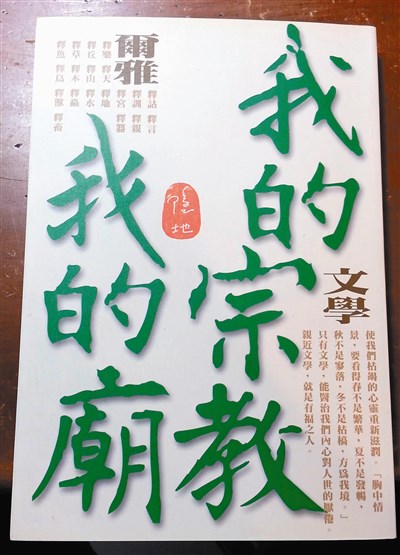 我的宗教
我的廟
隱地
文學
使我們枯竭的心靈重新滋潤。「胸中情
景，要看得春不是繁華，夏不是發暢，
秋不是寥落，冬不是枯槁，方為我境。」
只有文學，能醫治我們內心對人世的厭倦。
親近文學，就是有福之人。
爾雅
釋詁 釋言
釋訓 釋親
釋宮 釋器
釋樂 釋天 釋地
釋丘 釋山 釋水
釋草 釋木 釋蟲
釋魚 釋鳥 釋獸 釋畜